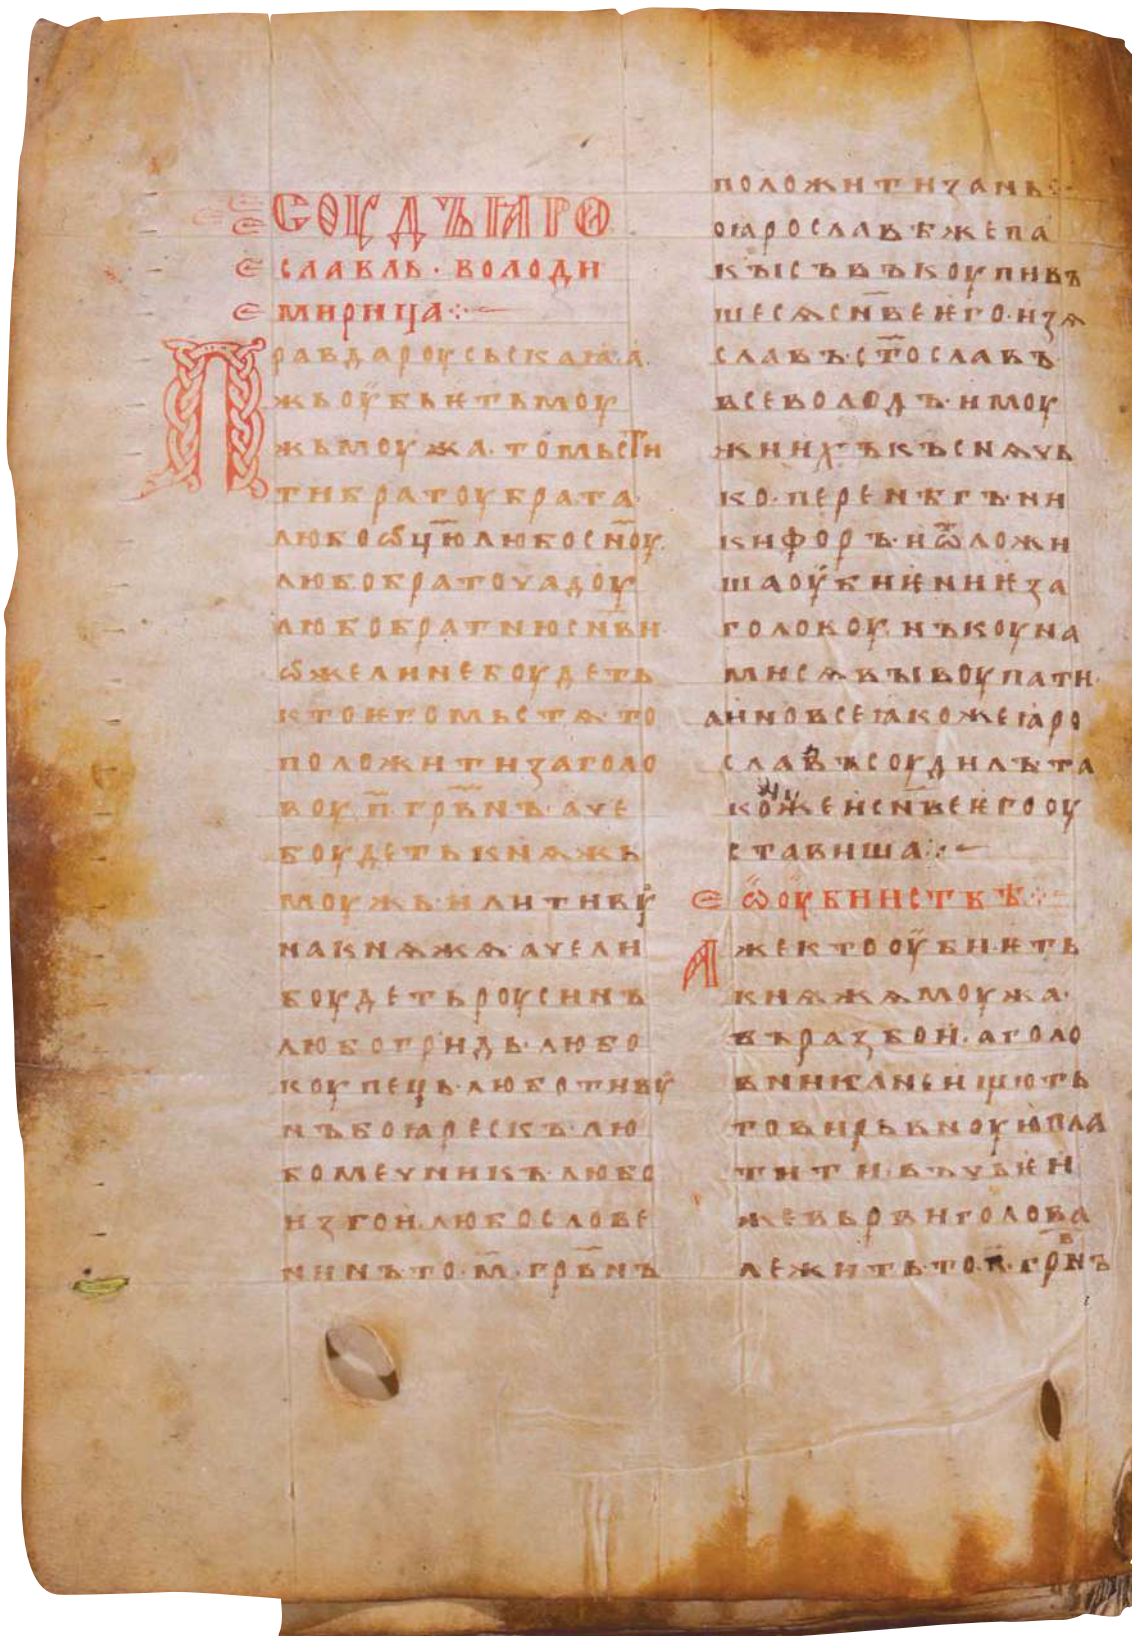 СОУДЪ ꙖРО
СЛАВЛЬ · ВОЛОДИ
МИРИЦА ⁘
ПРАВДА РОУСЬСКАꙖ · А
ЖЬ ОУБЬѤТЬ МОУ
ЖЬ МОУЖА · ТО МЬСТИ
ТИ БРАТОУ БРАТА ·
ЛЮБО Ѿц҃Ю ЛЮБО СН҃ОУ ·
ЛЮБО БРАТОУЧАДОУ
ЛЮБО БРАТНЮ СН҃ВИ
ѠЖЕ ЛИ НЕ БОУДЕТЬ
КТО ѤГО МЬСТѦ · ТО
ПОЛОЖИТИ ЗА ГОЛО
ВОУ · П҃ · ГРВ҃НЪ · АЧЕ
БОУДЕТЬ КНѦЖЬ
МОУЖЬ · ИЛИ ТИВУ
НА КНѦЖѦ · АЧЕ ЛИ
БОУДЕТЬ РОУСИНЪ
ЛЮБО ГРИДЬ · ЛЮБО
КОУПЕЦЬ · ЛЮБО ТИВУ
НЪ БОꙖРЕСКЪ · ЛЮ
БО МЕЧНИКЪ · ЛЮБО
ИЗГОИ · ЛЮБО СЛОВЕ
НИНЪ ТО · М҃ · ГРВ҃НЪ
ПОЛОЖИТИ ЗА НЬ ⁘
ѠꙖРОСЛАВѢ ЖЕ ПА
КЫ СЪВЪКОУПИВЪ
ШЕСѦ СН҃ВЕ ѤГО · ИЗѦ
СЛАВЪ · СТ҃ОСЛАВЪ ·
ВСЕВОЛОДЪ · И МОУ
ЖИ ИХЪ КЪСНѦЧЬ
КО · ПЕРЕНѢГЪ · НИ
КИФОРЪ · И ѾЛОЖИ
ША ОУБИѤНИѤ ЗА
ГОЛОВОУ · НЪ КОУНА
МИ СѦ ВЫВОУПАТИ ·
А ИНО ВСЕ ꙖКОЖЕ ꙖРО
СЛАВЪ СОУДИЛЪ ТА
КОЖЕ И СН҃ВЕ ѤГО ОУ
СТАВИША ⁘
Ѡ ОУБИИСТВѢ ⁘
АЖЕ КТО ОУБИѤТЬ
КНѦЖѦ МОУЖА ·
ВЪ РАЗБОИ · А ГОЛО
ВНИКА НЕ ИЩЮТЬ
ТО ВИРЬВНОУЮ ПЛА
ТИТИ · ВЪ ЧЬѤИ
ЖЕ ВЬРВИ ГОЛОВА
ЛЕЖИТЬ · ТО · П҃ · ГРВ҃НЪ